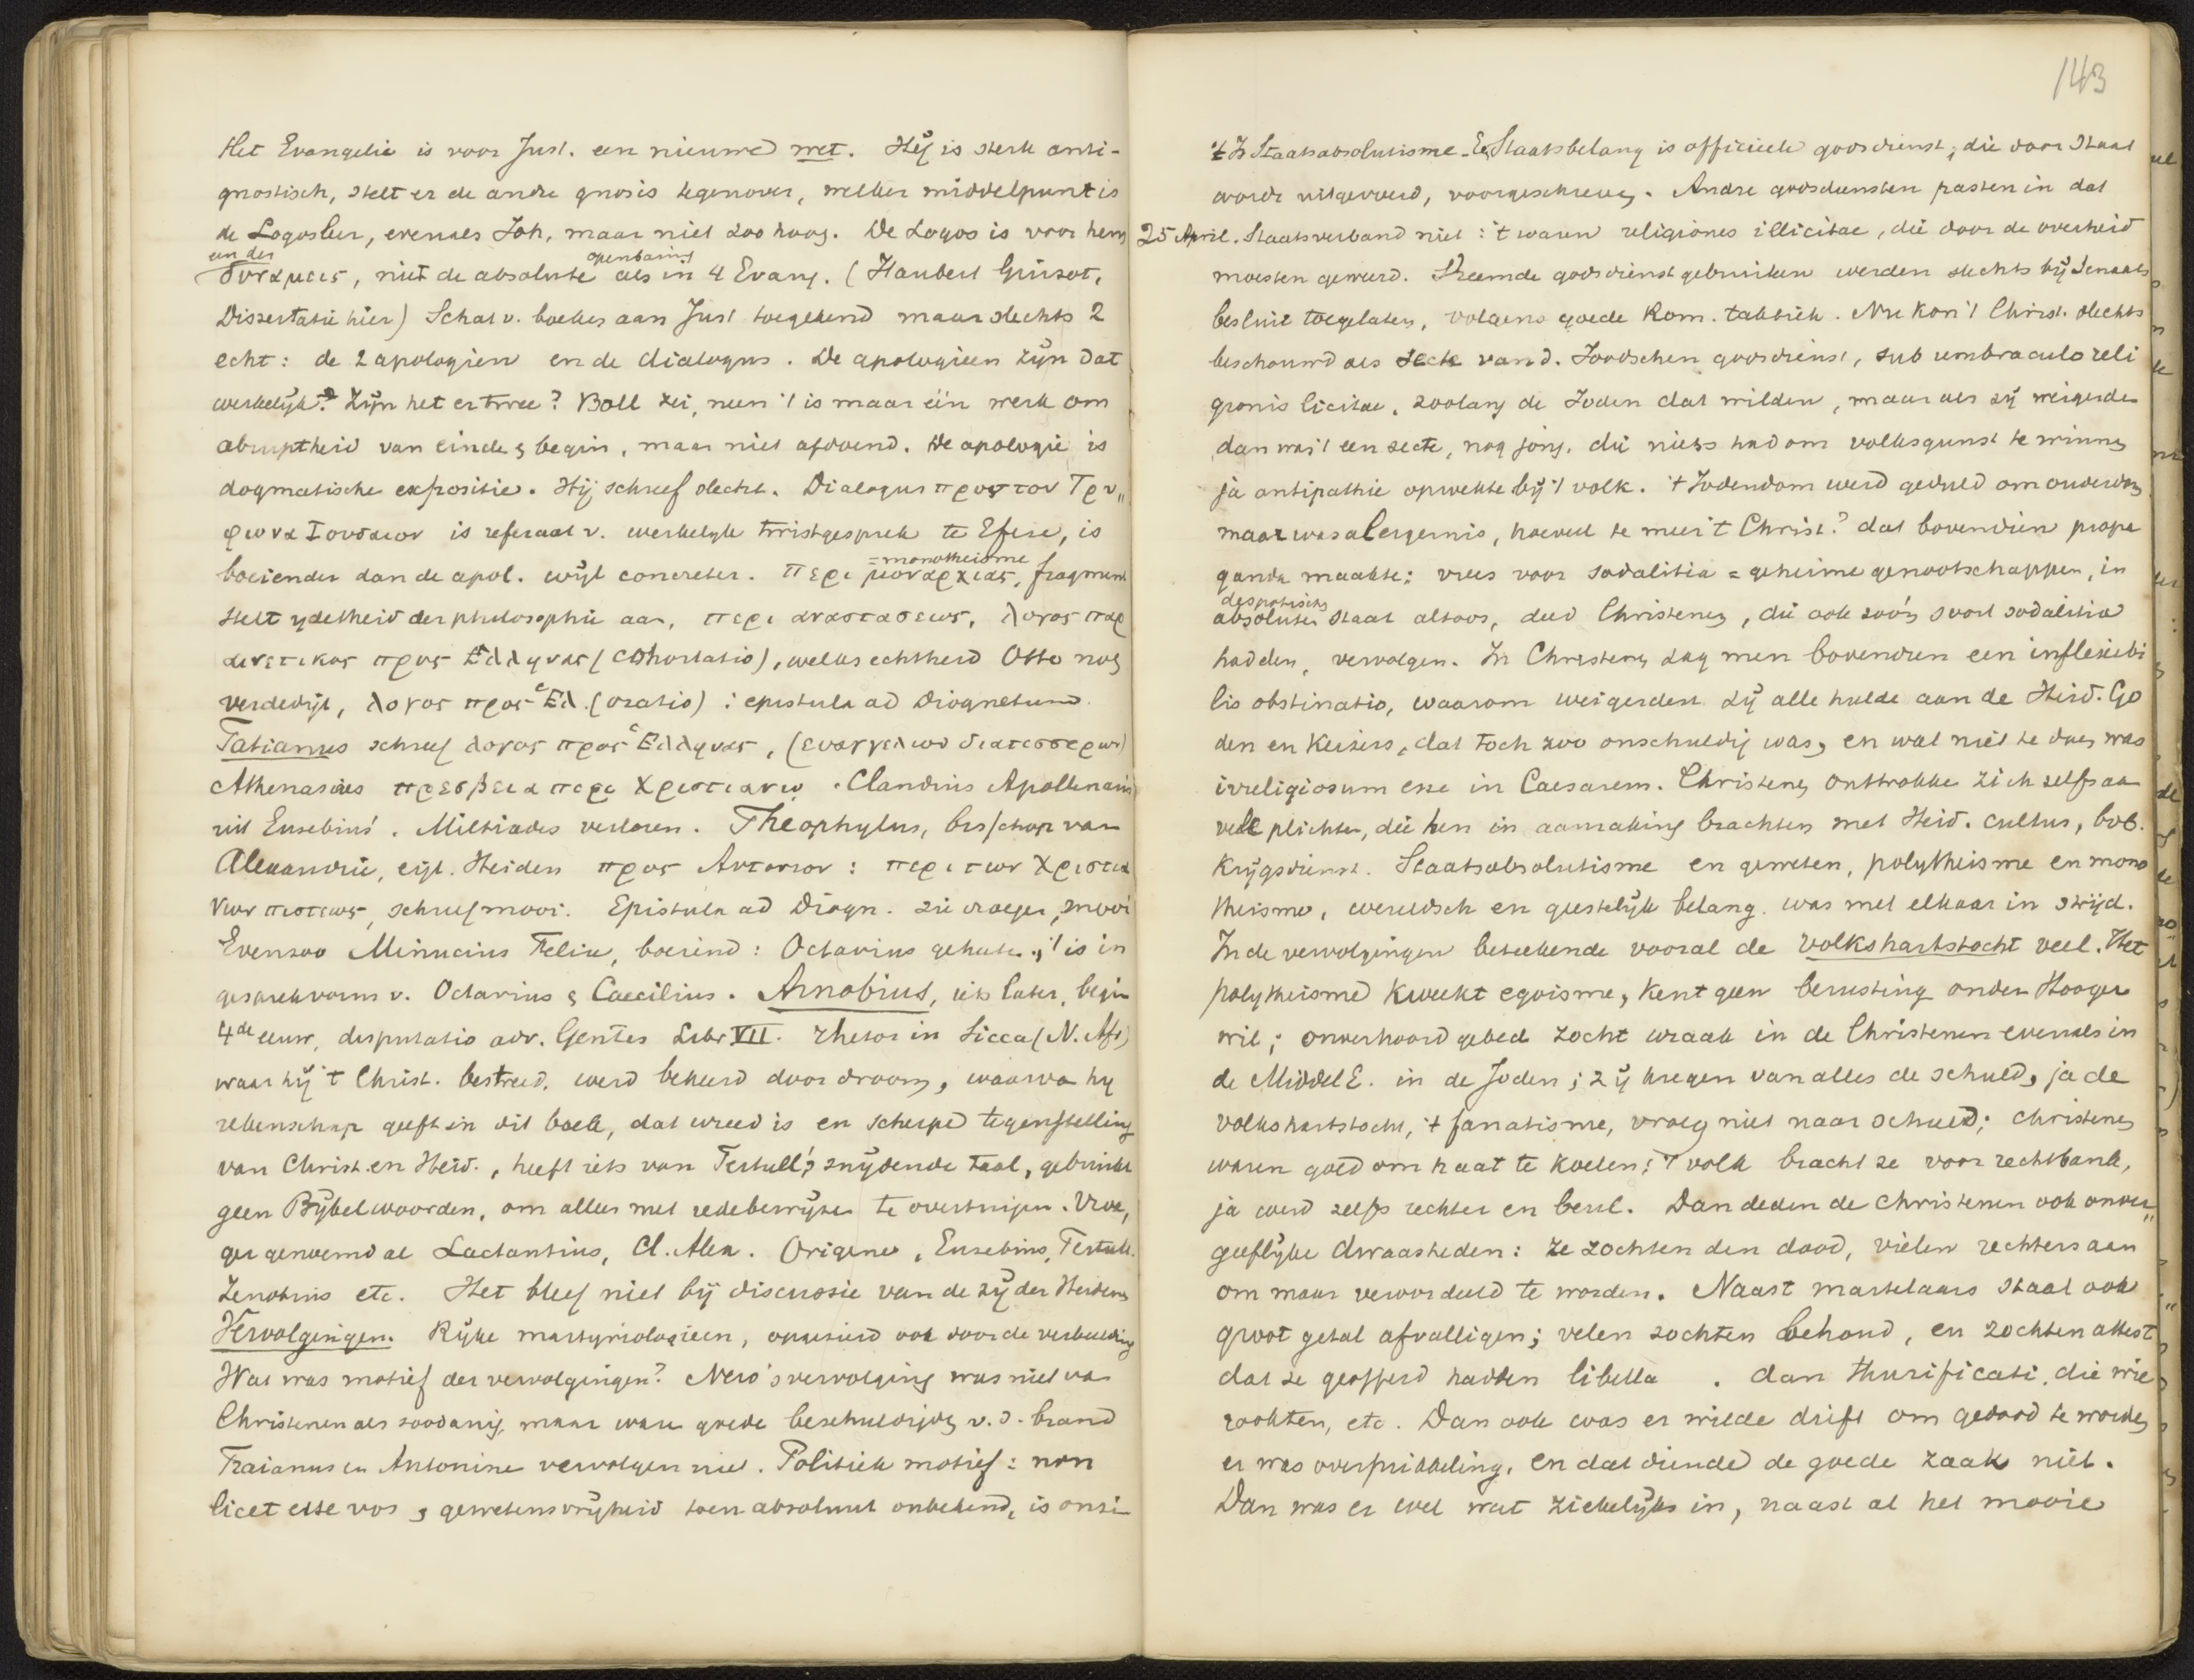 Het Evangelie is voor Just. een nieuwe wet. Hij is sterk anti-
gnostisch, stelt er de andre gnosis tegenover, welker middelpunt is
de Logosleer, evenals Joh, maar niet zoo hoog. De Logos is voor hem
een der openbaring
δυναμεις, niet de absolute als in 4 Evang. (Haubert Guizot,
Dissertatie hier) Schat v. boeken aan Just toegekend maar slechts 2
echt: de 2 apologien en de dialogus. De apologieen zijn dat
werkelijk? Zijn het er twee? Boll zei, neen 't is maar één werk om
abruptheid van einde & begin, maar niet afdoend. De apologie is
dogmatische expositie. Hij schreef slecht. Dialogus προς τον Τρυ„
φωνα Ιουδαιον is referaat v. werkelyk twistgesprek te Efese, is
=monotheisme
boeiender dan de apol. wijl concreter. Περι μοναρχιας, fragment
stelt ydelheid der philosophie aan, περι αναστασεως, λογος παρ
αινετικος προς Ελληνας (cohortatio), welks echtheid Otto nog
verdedigt, λογος προς Ελ. (oratio): epistula ad Diognetum.
Tatianus schreef λογος προς Ελληνας, (ευαγγελιον διατεσσερων)
Athenasoies πρεσβεια περι Χριστιανω. Claudius Apollinaris
uit Eusebius'. Miltiades verloren. Theophylus, bisschop van
Alexandrie, eigl. Heiden προς Αυτολιον: περι των Χριστια
νων πιστεως, schreef mooi. Epistula ad Diogn. zie vroeger, mooi
Evenzoo Minucius Felix, boeiend: Octavius geheeten, 't is in
gesprekvorm v. Octavius & Caecilius. Arnobius, iets later, begin
4de eeuw, disputatio adv. Gentes Libr VII. rhetor in Sicca (N. Afr)
waar hij 't Christ. bestreed, werd bekeerd door droom, waarva hy
rekenschap geeft in dit boek, dat wreed is en scherpe tegenstelling
van Christ. en Heid., heeft iets van Tertull's snijdende taal, gebruikt
geen Bijbelwoorden, om alles met redebewijzen te overtuigen. Vroe,
ger genoemd al Lactantius, Cl. Alex. Origenes, Eusebius, Tertull.
Zenobius etc. Het bleef niet bij discussie van de zij der Heidenen
Vervolgingen. Rijke martyriologieen, opgesierd ook door de verbeelding
Wat was motief der vervolgingen? Nero's vervolging was niet va
Christenen als zoodanig, maar ware goede beschuldiging v. d. brand
Traianus en Antonine vervolgen niet. Politiek motief: non
licet esse vos, gewetensvrijheid toen absoluut onbekend, is anti
143
't Is Staatsabsolutisme. En Staatsbelang is officieele godsdienst, die door Staat
wordt uitgevoerd, voorgeschreven. Andre godsdiensten pasten in dat
25 April. Staatsverband niet: 't waren religiones illicitae, die door de overheid
moesten geweerd. Vreemde godsdienstgebruiken werden slechts bij Senaats
besluit toegelaten, volgens goede Rom. taktiek. Nu kon 't Christ. slechts
beschouwd als secte van d. Joodschen godsdienst, sub umbraculo reli
gionis licitae, zoolang de Joden dat wilden, maar als zij weigerden
dan was 't een secte, nog jong, die niets had om volksgunst te winnen
ja antipathie opwekte bij 't volk. 't Jodendom werd geduld om ouderdom
maar was al ergernis, hoeveel te meer 't Christ.? dat bovendien propa
ganda maakte: vrees voor sodalitia = geheime genootschappen, in
despotisch
absoluten staat altoos, deed Christenen, die ook zoo'n soort sodalitia
hadden, vervolgen. In Christenen zag men bovendien een inflexibi
lis obstinatio, waarom weigerden zij alle hulde aan de Heid. Go
den en Keizers, dat toch zoo onschuldig was, en wat niet te doen was
irreligiosum esse in Caesarem. Christenen onttrokken zich zelfs aa
vele plichten, die hen in aanraking brachten met Heid. cultus, bvb.
krijgsdienst. Staatsabsolutisme en geweten, polytheisme en mono
theisme, wereldsch en geestelijk belang was met elkaar in strijd.
In de vervolgingen beteekende vooral de volkshartstocht veel. Het
polytheisme kweekt egoisme, kent geen berusting onder Hooger
wil; onverhoord gebed zocht wraak in de Christenen evenals in
de Middel E. in de Joden; zij kregen van alles de schuld, ja de
volkshartstocht, 't fanatisme, vroeg niet naar schuld; christenen
waren goed om haat te koelen; 't volk bracht ze voor rechtbank,
ja werd zelfs rechter en beul. Dan deden de christenen ook onver„
geeflijke dwaasheden: ze zochten den dood, vielen rechters aan
om maar veroordeeld te worden. Naast martelaars staat ook
groot getal afvalligen; velen zochten behoud, en zochten attest
dat ze geofferd hadden libella . dan thurificati, die wie
rookten, etc. Dan ook was er wilde drift om gedood te worden
er was overprikkeling, en dat diende de goede zaak niet.
Dan was er wel wat ziekelijks in, naast al het mooie